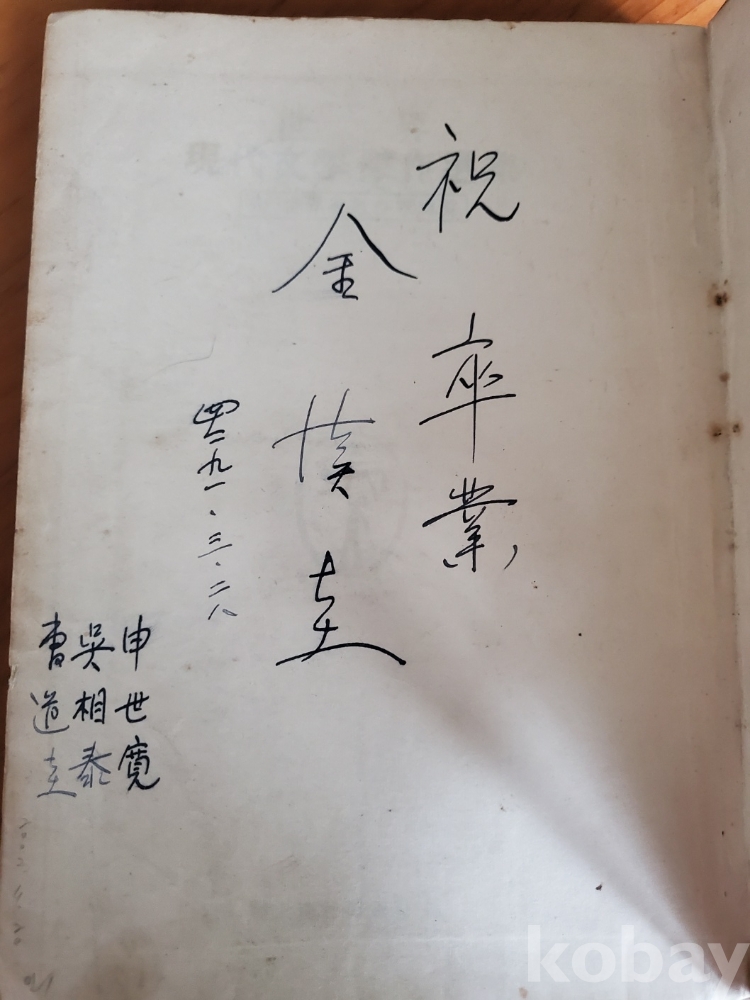 祝 卒業
金
四二九一、三、二八
申世寬
吳相泰
曺道
kobay